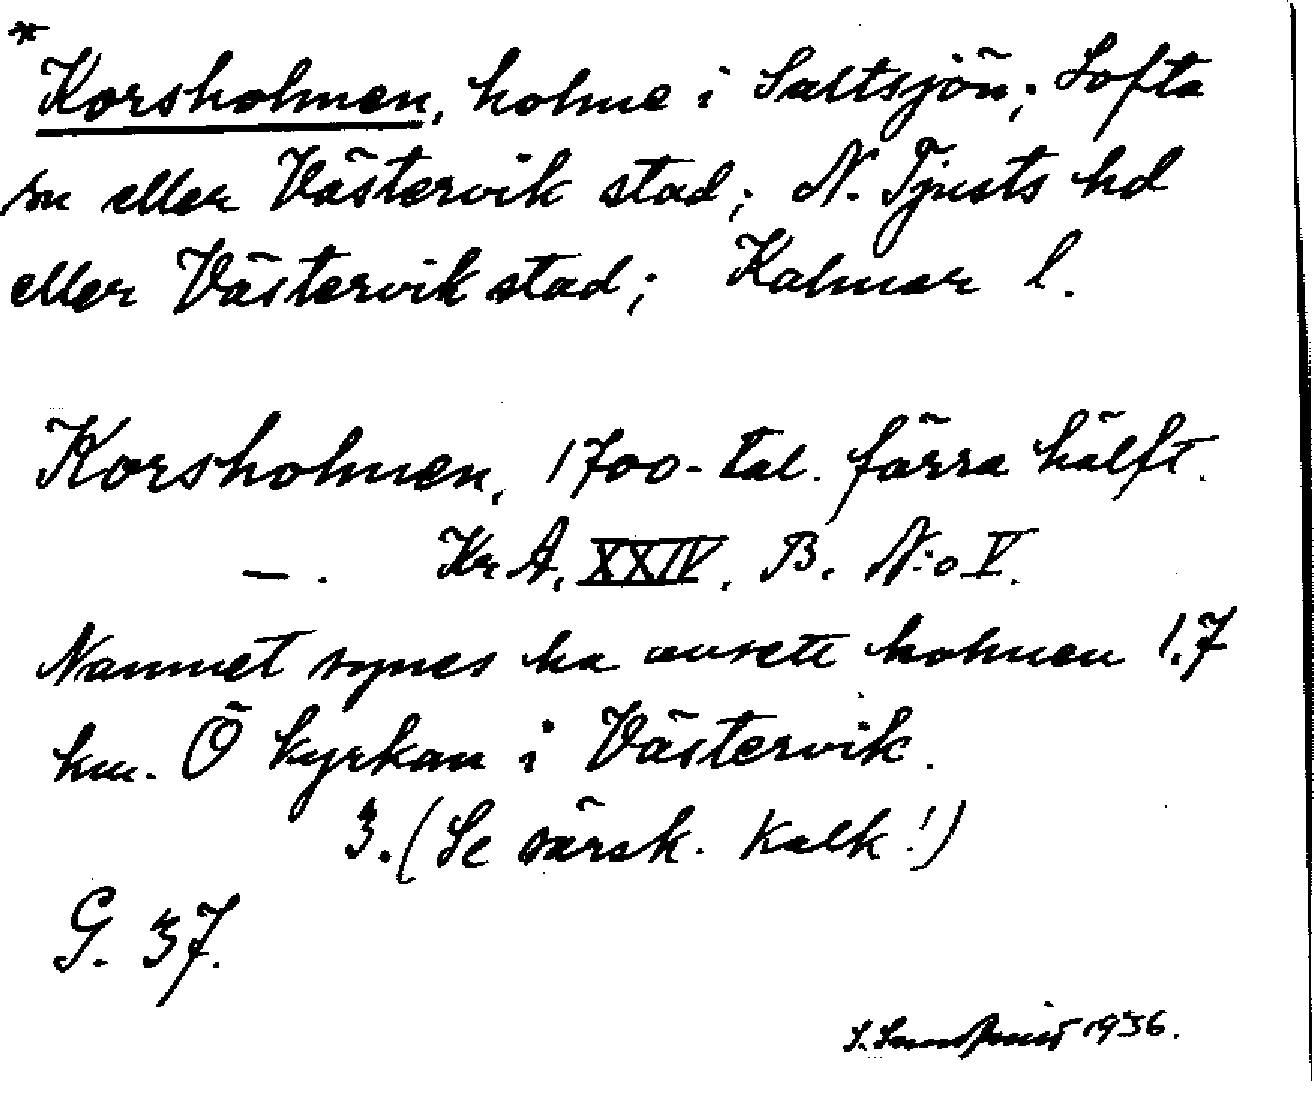 * Korsholmen, holme i Saltsjön; Lofta
sn eller Västervik stad; N. Tjusts hd
eller Västervik stad; Kalmar l.
Korsholmen, 1700-tal. förra hälft.
—. Kr A. XXIV. B. N:o V.
Namnet synes ha avsett holmen 1,7
km. Ö kyrkan i Västervik.
3. (Se särsk. kalk!)
G. 37.
1936.